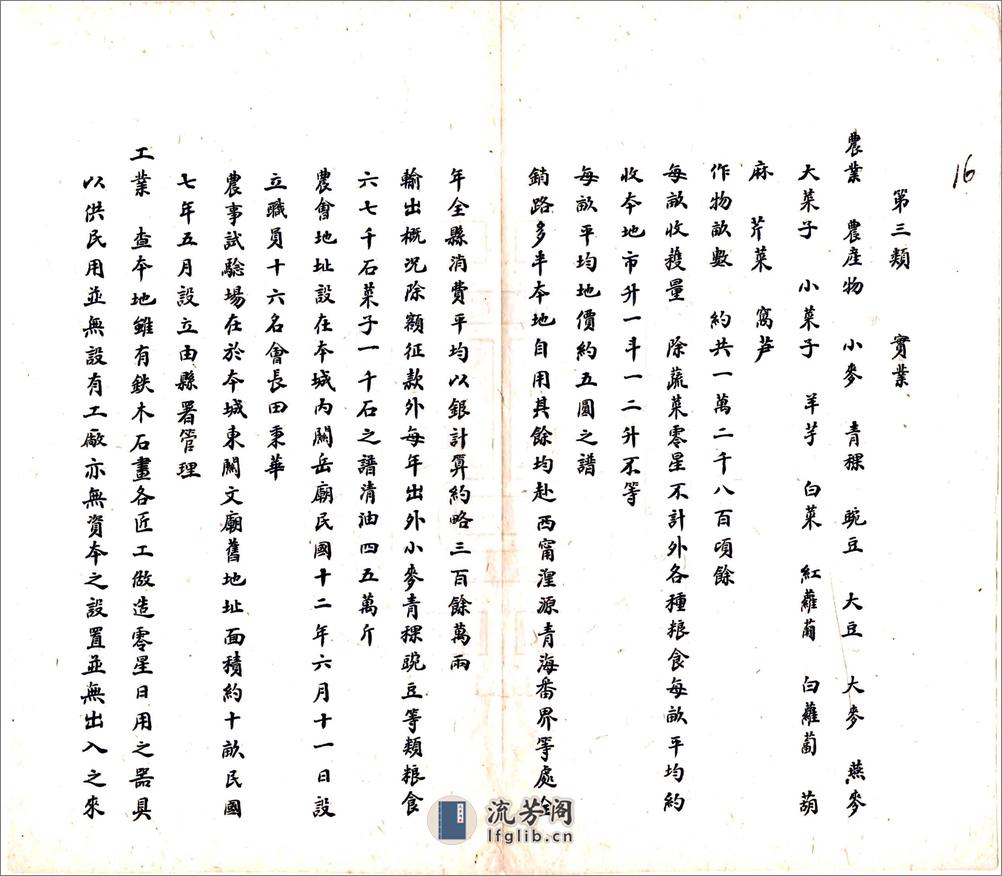 16
第三類 實業
農業 農產物 小麥 青稞 豌豆 大豆 大麥 燕麥
大菜子 小菜子 羊芋 白菜 紅蘿蔔 白蘿蔔 葫
麻 芹菜 窩笋
作物畝數 約共一萬二千八百項餘
每畝收穫量 除蔬菜零星不計外各種粮食每畝平均約
收本地市升一斗一二升不等
每畝平均地價約五圓之譜
銷路多半本地自用其餘均赴西甯湟源青海番界等處全
年全縣消費平均以銀計算約略三百餘萬兩
輸出概況除額征款外每年出外小麥青稞豌豆等類粮食
六七千石菜子一千石之譜清油四五萬斤
農會地址設在本城內關岳廟民國十二年六月十一日設
立職員十六名會長田秉華
農事試驗場在於本城東關文廟舊地址面積約十畝民國
七年五月設立由縣署管理
工業 查本地雖有鉄木石畫各匠工做造零星日用之器具
以供民用並無設有工廠亦無資本之設置並無出入之來
流芳阁
lfglib.cn